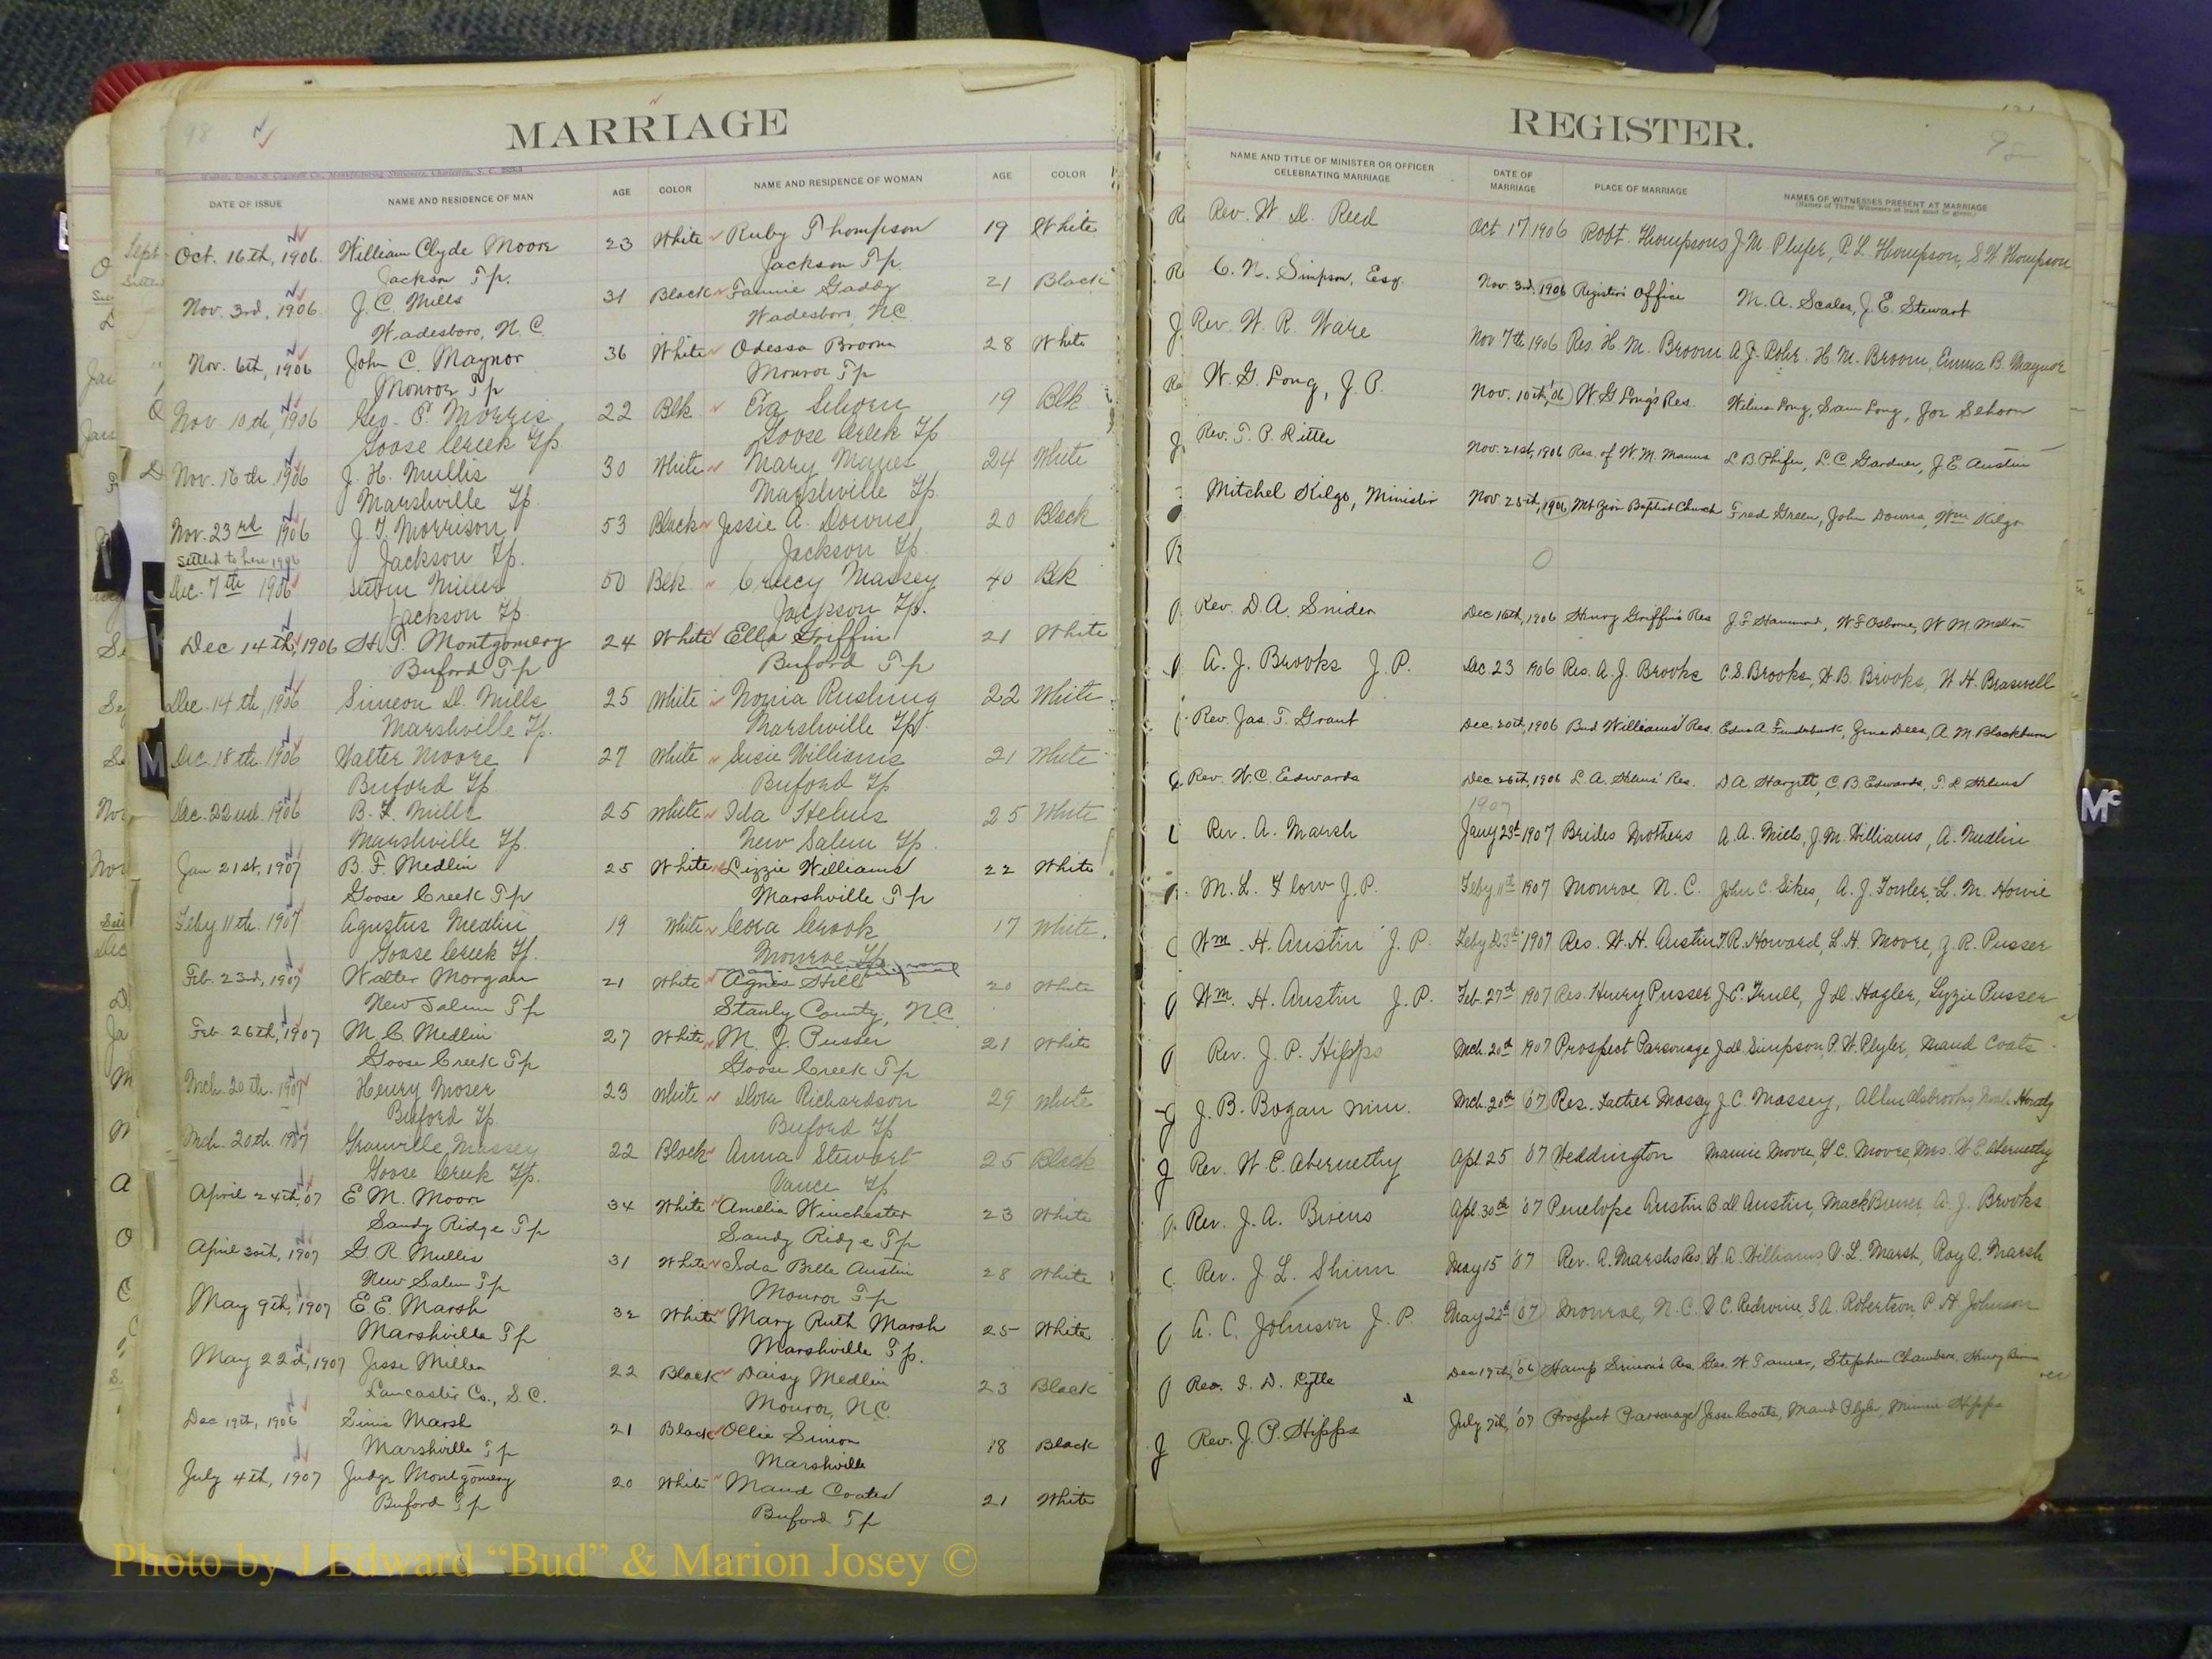 MARRIAGE
98
DATE OF ISSUE NAME AND RESIDENCE OF MAN AGE COLOR NAME AND RESIDENCE OF WOMAN AGE COLOR
Oct. 16th, 1906. William Clyde Moore 23 White Ruby Thompson 19 White
Jackson Tp. Jackson Tp.
Nov. 3rd, 1906. J. C. Mills 31 Black Fannie Gaddy 21 Black
Wadesboro, N.C. Wadesboro, N.C.
Nov. 6th, 1906 John C. Maynor 36 White Odessa Broom 28 White
Monroe Tp Monroe Tp
Nov 10th, 1906 Geo. E. Morris 22 Blk Eva Sehorn 19 Blk
Goose Creek Tp Goose Creek Tp
Nov. 16th 1906 J. H. Mullis 30 White Mary 24 White
Marshville Tp. Marshville Tp.
Nov. 23rd 1906 J. T. Morrison 53 Black Jessie A. Downs 20 Black
Settled to here 1906 Jackson Tp. Jackson Tp.
Dec. 7th 1906 Miller 50 Blk Creecy Massey 40 Blk
Jackson Tp. Jackson Tp.
Dec 14th, 1906 H. T. Montgomery 24 White Ella Griffin 21 White
Buford Tp Buford Tp
Dec. 14th, 1906 Simeon D. Mills 25 White Nonia Rushing 22 White
Marshville Tp. Marshville Tp.
Dec. 18th. 1906 Walter Moore 27 White Susie Williams 21 White
Buford Tp Buford Tp
Dec. 22nd. 1906 B. F. Mills 25 White Ida Helms 25 White
Marshville Tp. New Salem Tp.
Jan 21st, 1907 B. F. Medlin 25 White Lizzie Williams 22 White
Goose Creek Tp Marshville Tp
Feby 11th. 1907 Agustus Medlin 19 White Cora Crook 17 White.
Goose Creek Tp. Monroe Tp.
Feb. 23rd, 1907 Walter Morgan 21 White Agnes Hill 20 White
New Salem Tp Stanly County, N.C.
Feb 26th, 1907 M. C. Medlin 27 White M. J. Pusser 21 White
Goose Creek Tp Goose Creek Tp
Mch. 20th. 1907 Henry Moser 23 White Dora Richardson 29 White
Buford Tp Buford Tp
Mch. 20th. 1907 Granville Massey 22 Black Anna Stewart 25 Black
Goose Creek Tp. Vance Tp
April 24th, 07 E. M. Moore 34 White Amelia Winchester 23 White
Sandy Ridge Tp Sandy Ridge Tp
April 30th, 1907 G. R. Mullis 31 White Ida Belle Austin 28 White
New Salem Tp Monroe Tp
May 9th, 1907 E. E. Marsh 32 White Mary Ruth Marsh 25 White
Marshville Tp Marshville Tp.
May 22d, 1907 Jesse Miller 22 Black Daisy Medlin 23 Black
Lancaster Co., S.C. Monroe, N.C.
Dec 19th, 1906 Marsh 21 Black Ollie Simon 18 Black
Marshville Tp Marshville
July 4th, 1907 Judge Montgomery 20 White Maud Coates 21 White
Buford Tp Buford Tp
REGISTER.
NAME AND TITLE OF MINISTER OR OFFICER CELEBRATING MARRIAGE DATE OF MARRIAGE PLACE OF MARRIAGE NAMES OF WITNESSES PRESENT AT MARRIAGE
(Names of Three Witnesses at least must be given.)
Rev. W. D. Reed Oct 17 1906 Robt. Thompsons J. M. Plyler, P. L. Thompson, S. W. Thompson
C. N. Simpson, Esq. Nov. 3rd, 1906 Register's Office M. A. Scales, J. E. Stewart
Rev. W. R. Ware Nov 7th 1906 Res. H. M. Broom H. M. Broom, Emma B. Maynor
W. G. Long, J. P. Nov. 10th, '06 W. G Long's Res. Wilma Long, Sam Long, Joe Sehorn
Rev. T. P. Little Nov. 21st, 1906 Res. of W. M. L. B. Phifer, L. C. Gardner, J. E. Austin
Mitchel Kilgo, Minister Nov 25th, 1906 Mt Zion Baptist Church Fred Green, John Downs, Wm Kilgo
Rev. D. A. Snider Dec 16th, 1906 Henry Griffin's Res J. F. Hammond, W F Osborne, W. M.
A. J. Brooks J. P. Dec. 23 1906 Res. A. J. Brooks C. S. Brooks, W. B. Brooks, W. H. Braswell
Rev. Jas. T. Grant Dec 20th, 1906 Bud Williams' Res. A. Funderburk, Dees, A. M Blackburn
Rev. W. C. Edwards Dec 26th, 1906 L. A. Helms' Res. D A. Hargett, C. B. Edwards, T. L Helms
1907
Rev. A. Marsh Jany 23d 1907 Brides Mothers A. A. Mills, J. M. Williams, A. Medlin
M. L. Flow J. P. Feby 11th 1907 Monroe N. C. John C. Sikes, A. J. Fowler, L. M. Howie
Wm. H. Austin J. P. Feby 23d 1907 Res. W. H. Austin T. R. Howard, L. H. Moore, J. R. Pusser
Wm. H. Austin J. P. Feb. 27th 1907 Res. Henry Pusser J. C. Trull, J. D. Hagler, Lizzie Pusser
Rev. J. P. Hipps Mch. 20th 1907 Prospect Parsonage J. D. Simpson, P. W. Plyler, Maud Coats
J. B. Bogan Min. Mch. 20th '07 Res. Luther Massey J. C. Massey, Allen Alsbrooks,
Rev. W. E. Abernethy Apl. 25 '07 Weddington Mamie Moore, Y. C. Moore, Mrs. W. E. Abernethy
Rev. J. A. Bivens Apl. 30th '07 Penelope Austin B. D. Austin, Mack Brewer, A. J. Brooks
Rev. J. L. Shinn May 15 '07 Rev. A. Marshs Res W. A. Williams, V. L. Marsh, Ray A. Marsh
A. C. Johnson J. P. May 22d '07 Monroe, N. C. V. C. Redwine, S A. Robertson, P. H Johnson
Rev. I. D. Lytle Dec 19th, '06 Hamp Simon's Res Geo. W Tanner, Stephen Chambers,
Rev. J. P. Hipps July 7th, '07 Prospect Parsonage Jesse Coats, Maud Plyler, Minnie Hipps
M
Mc
Photo by J Edward “Bud” & Marion Josey ©